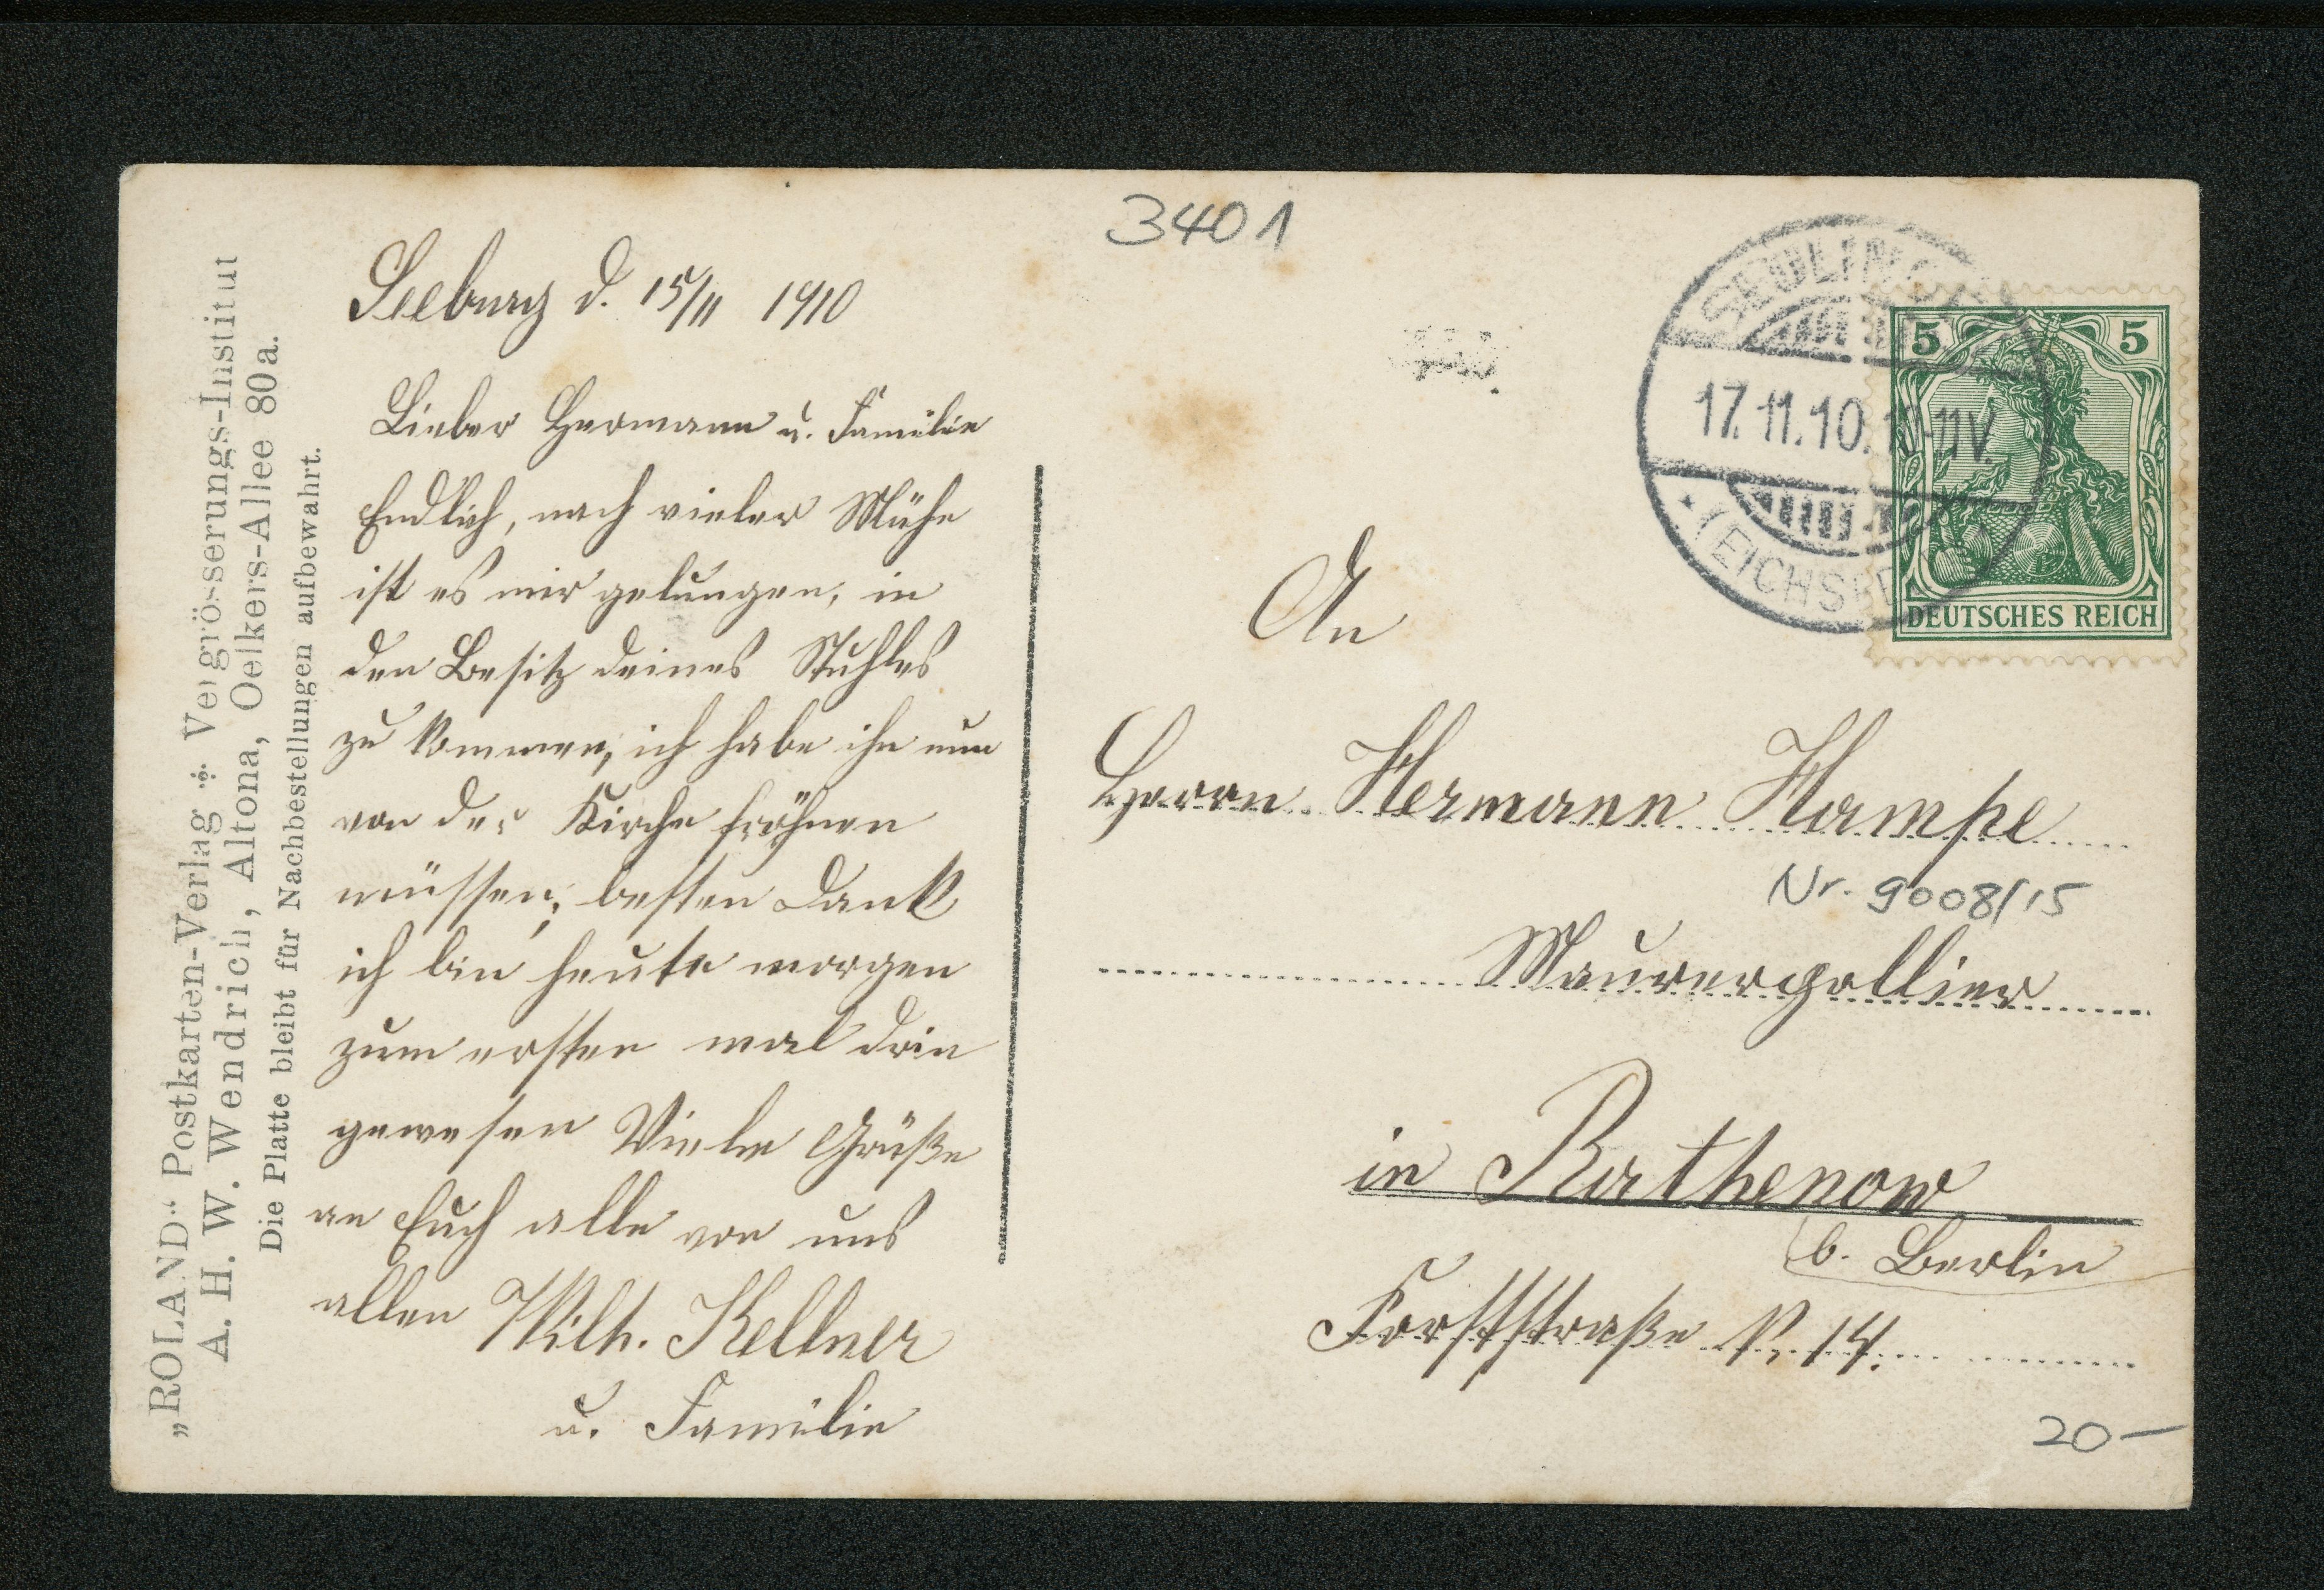 3401
Seeburg d. 15/11 1910
Lieber Hermann u. Familie
Endlich, nach vieler Mühe
ist es mir gelungen, in
den Besitz deines Stuhles
zu kommen, ich habe ihn nun
von der Kirche fröhnen
müssen, besten Dank
ich bin heute morgen
zum ersten mal drin
gewesen Viele Grüße
an Euch alle von uns
allen Wilh. Kellner
u. Familie
„ROLAND“ Postkarten-Verlag ※ Vergrösserungs-Institut
A. H. W. Wendrich, Altona, Oelkers-Allee 80a.
Die Platte bleibt für Nachbestellungen aufbewahrt.
17.11.10. 10-11V.
(EICHSF
5 5
DEUTSCHES REICH
An
Herrn Hermann Hampe
Nr. 9008/15
Maurerpollier
in Rathenow
b. Berlin
Forststraße N. 14.
20 —